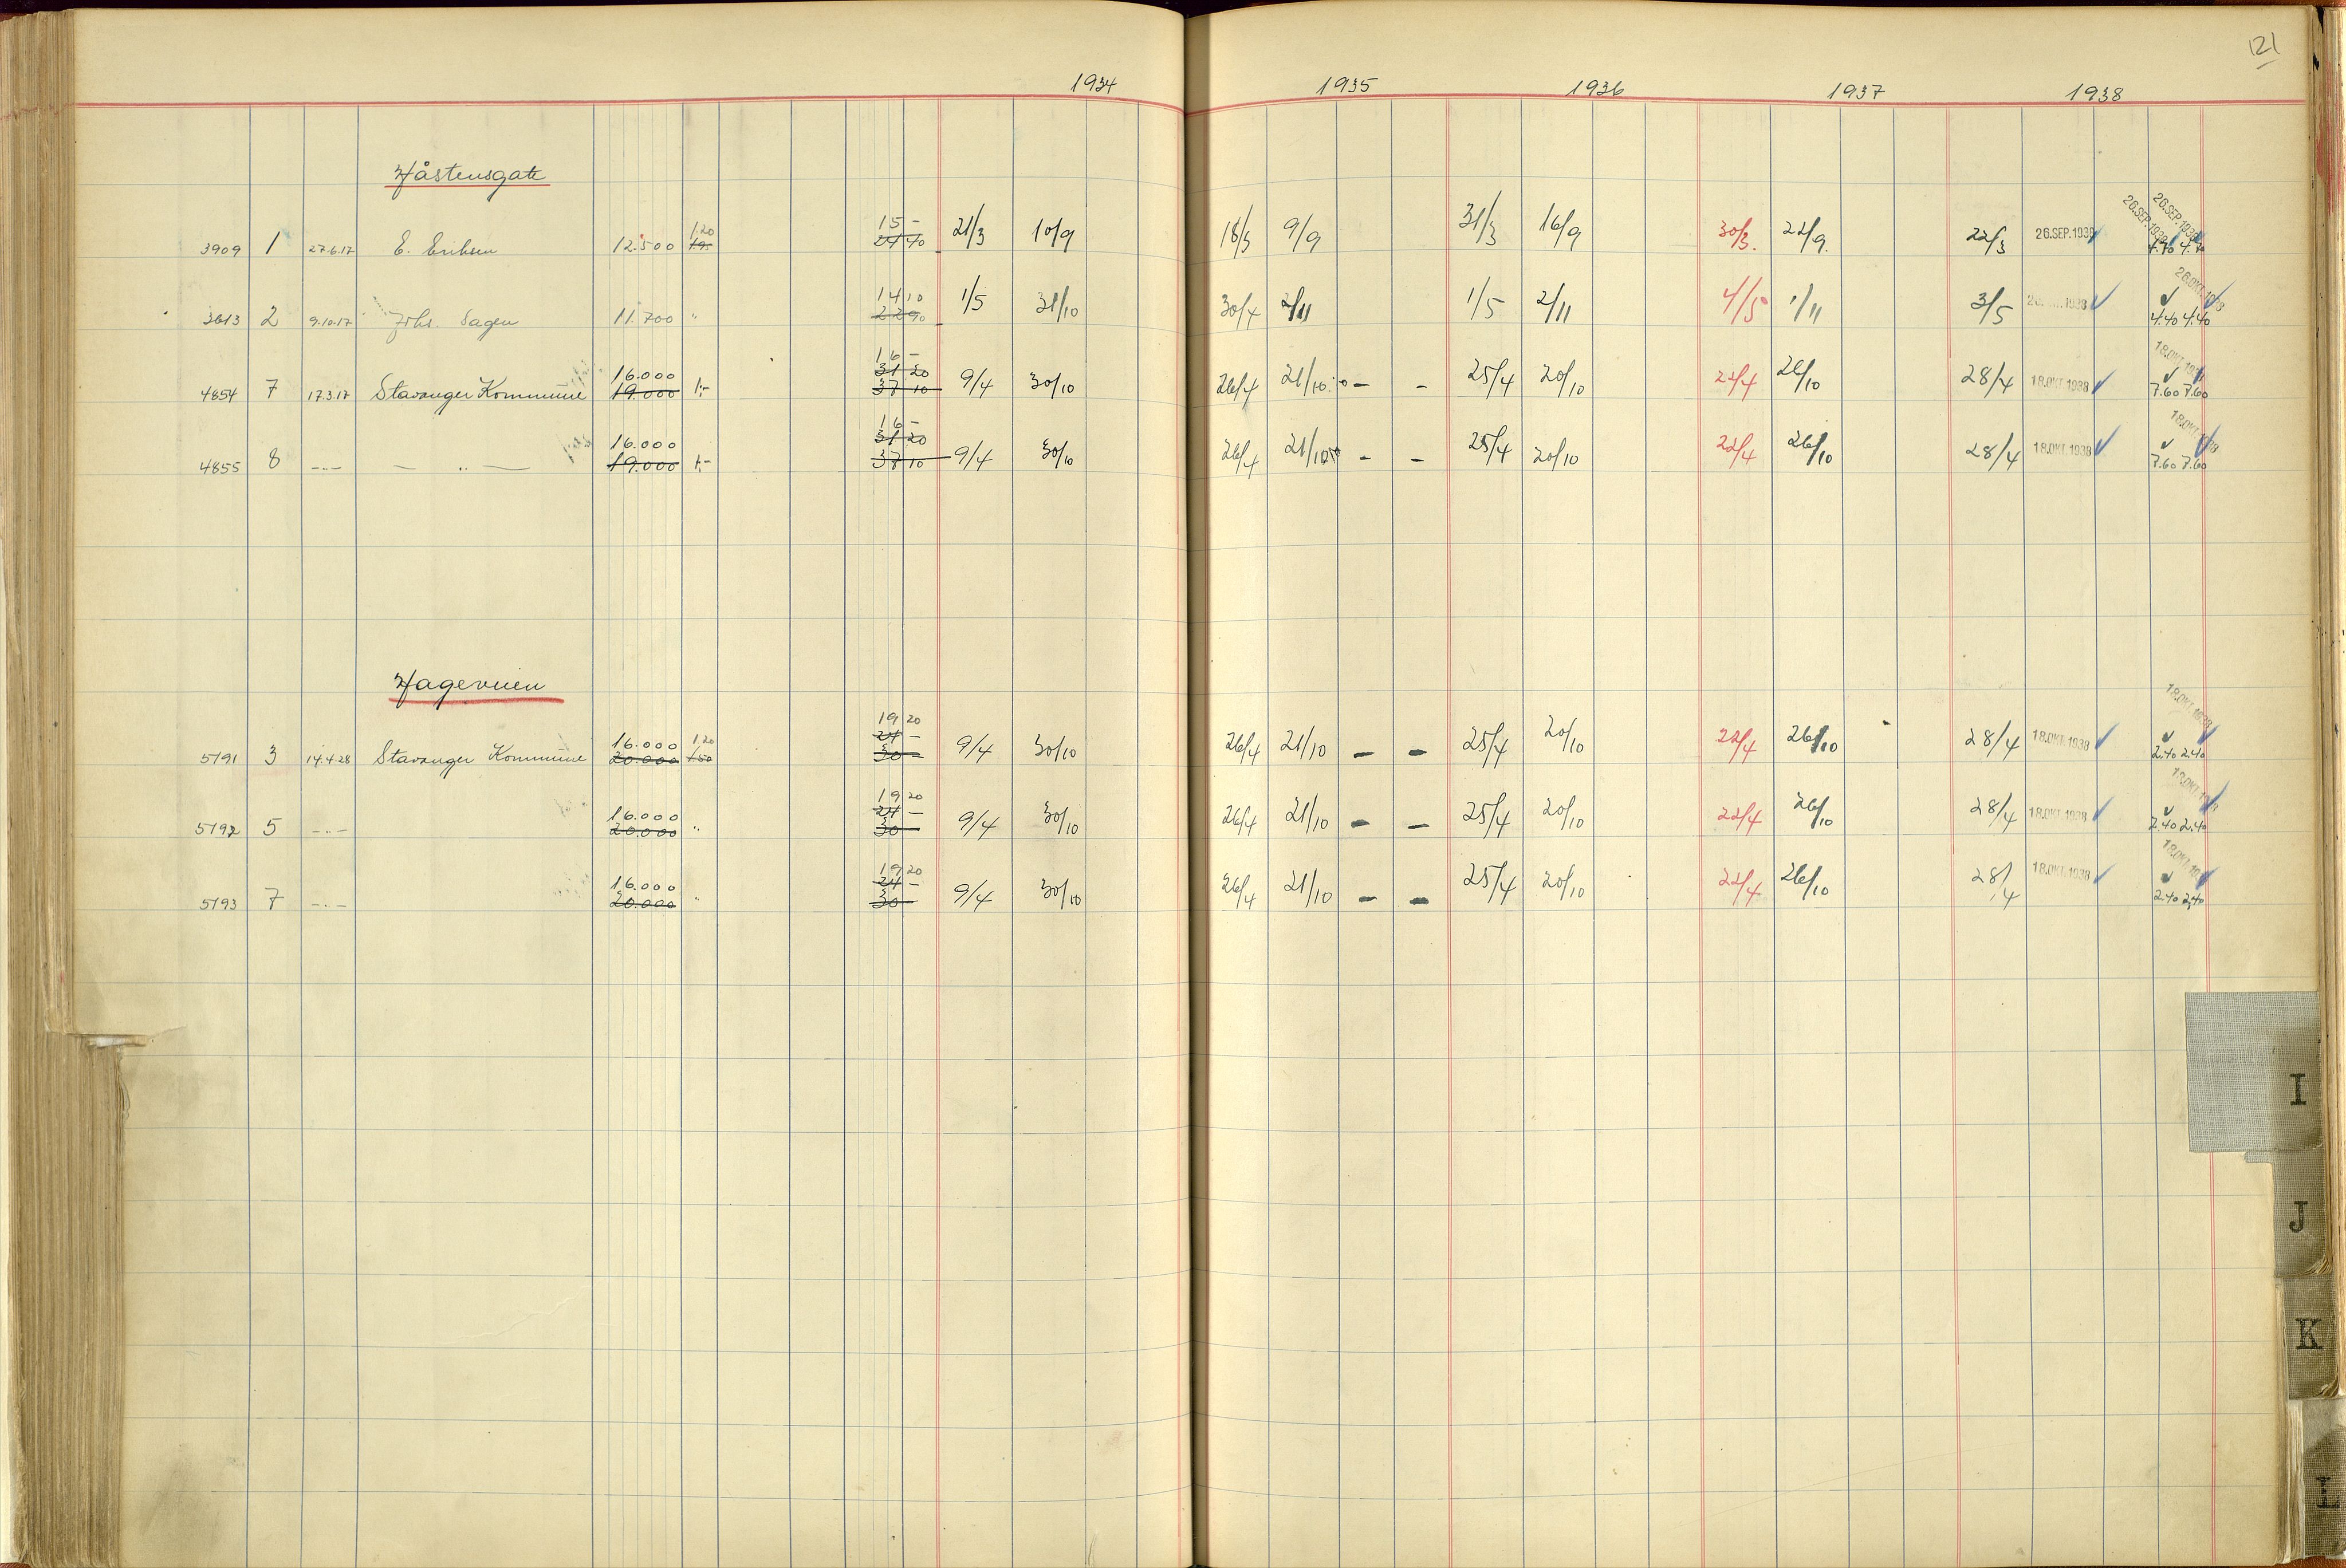 121
1934 1935 1936 1937 1938
Håstensgate
15 - 1.20
3909 1 27.6.17 E. Eriksen 12.500 24 40 21/3 10/9 18/3 9/9 31/3 16/9 30/3. 22/9. 22/3 26.SEP.1938 26.SEP.1938 26.SEP.1938 4.70 4.70
14 10
3613 2 9.10.17 Johs. Sagen 11.700 " 22 90 1/5 31/10 30/4 2/11 1/5 2/11 4/5 1/11 3/5 26.OKT.1938 4.40 4.40
16 -
16.000 31 20
4854 7 17.3.17 Stavanger Kommune 19.000 1.- 37 10 9/4 30/10 26/4 21/10 - - 25/4 20/10 22/4 26/10 28/4 18.OKT.1938 18.OKT.1938 7.60 7.60
16 -
16.000 31 20
4855 8 -"- - " - 19.000 1.- 37 10 9/4 30/10 26/4 21/10 - - 25/4 20/10 22/4 26/10 28/4 18.OKT.1938 18.OKT.1938 7.60 7.60
Hageveien
19 20
16.000 1.20 24 -
5191 3 14.4.28 Stavanger Kommune 20.000 1.50 30 - 9/4 30/10 26/4 21/10 - - 25/4 20/10 22/4 26/10 28/4 18.OKT.1938 18.OKT.1938 2.40 2.40
19 20
16.000 24 -
5192 5 -"- 20.000 " 30 - 9/4 30/10 26/4 21/10 - - 25/4 20/10 22/4 26/10 28/4 18.OKT.1938 18.OKT.1938 2.40 2.40
19 20
16.000 24 -
5193 7 -"- 20.000 " 30 - 9/4 30/10 26/4 21/10 - - 25/4 20/10 22/4 26/10 28/4 18.OKT.1938 18.OKT.1938 2.40 2.40
I
J
K
L